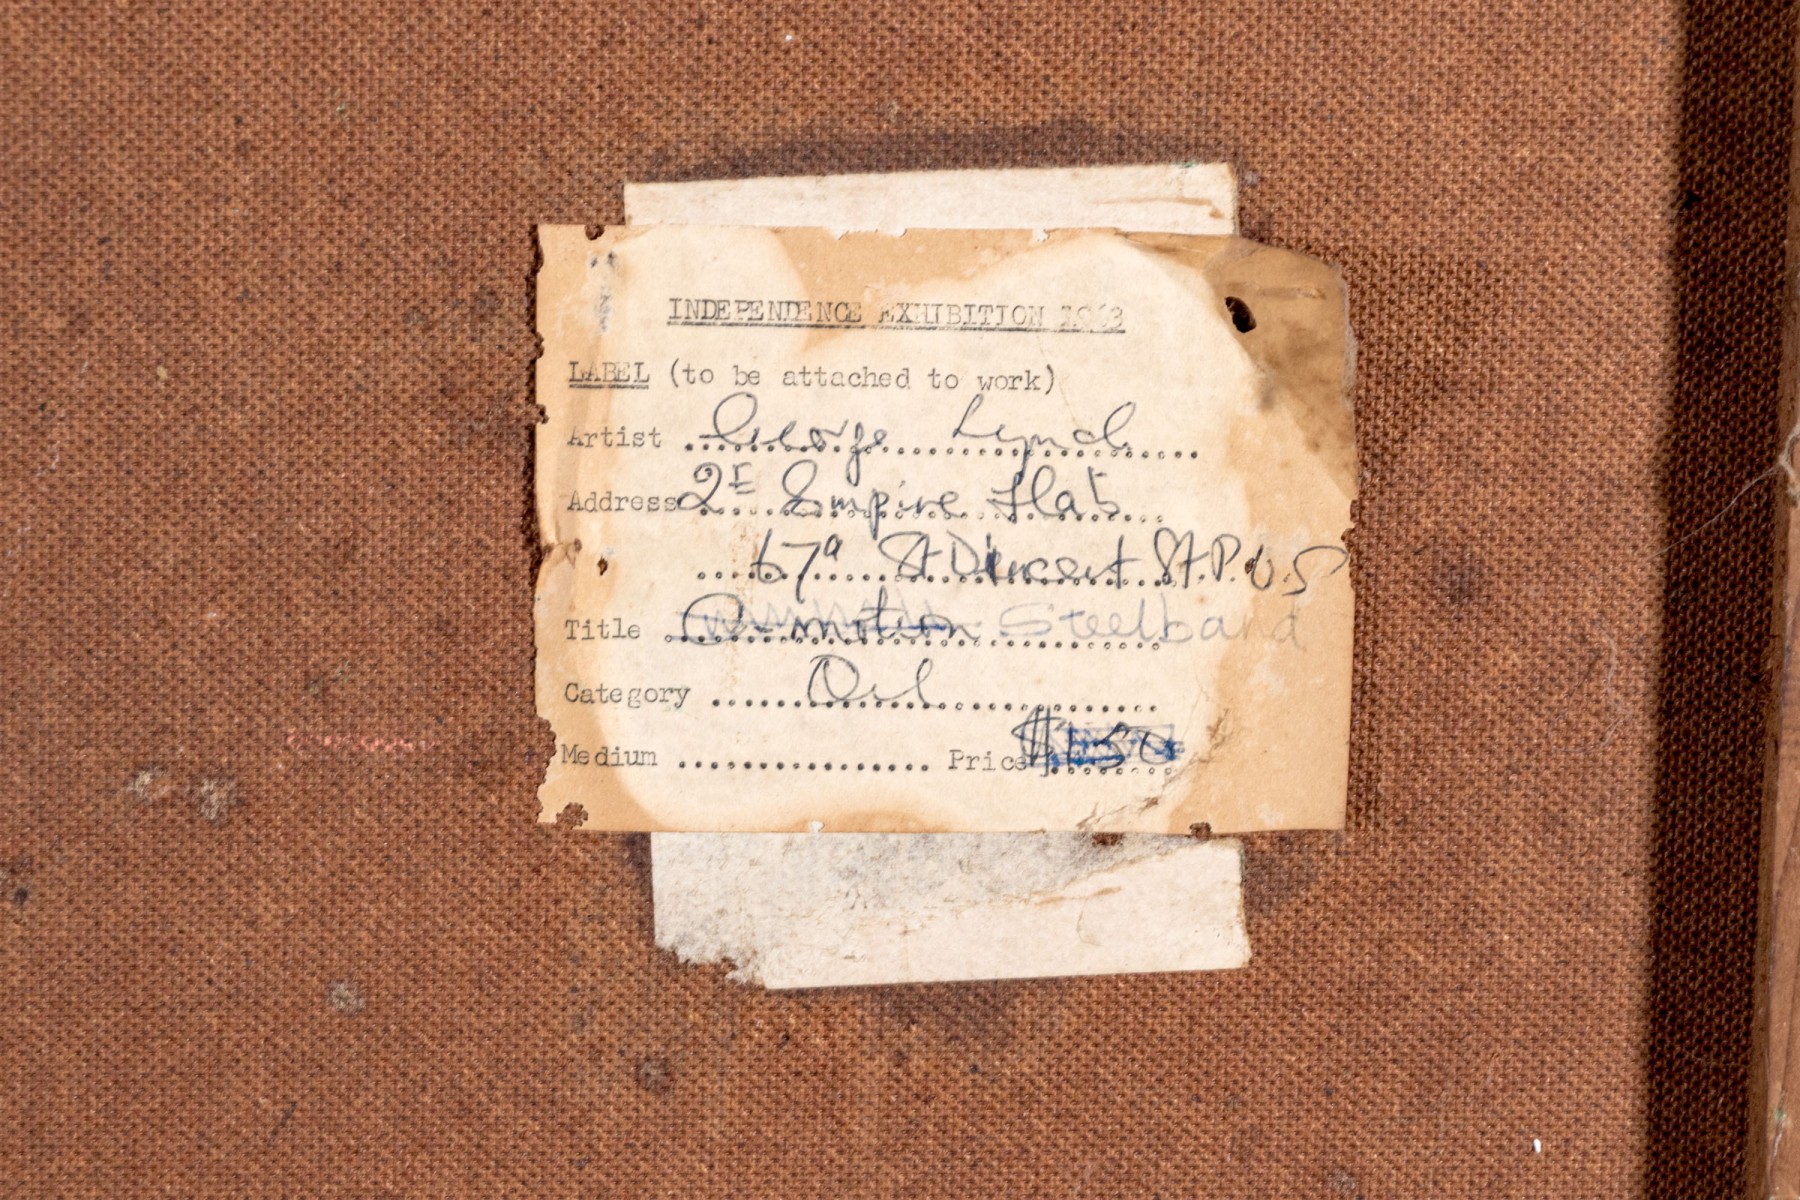 INDEPENDENCE EXHIBITION 1963
LABEL (to be attached to work)
Artist George Lynch
Address 2E Empire Flats
67a St Vincent St. P.O.S
Title Steelband
Category Oil
Medium Price $150